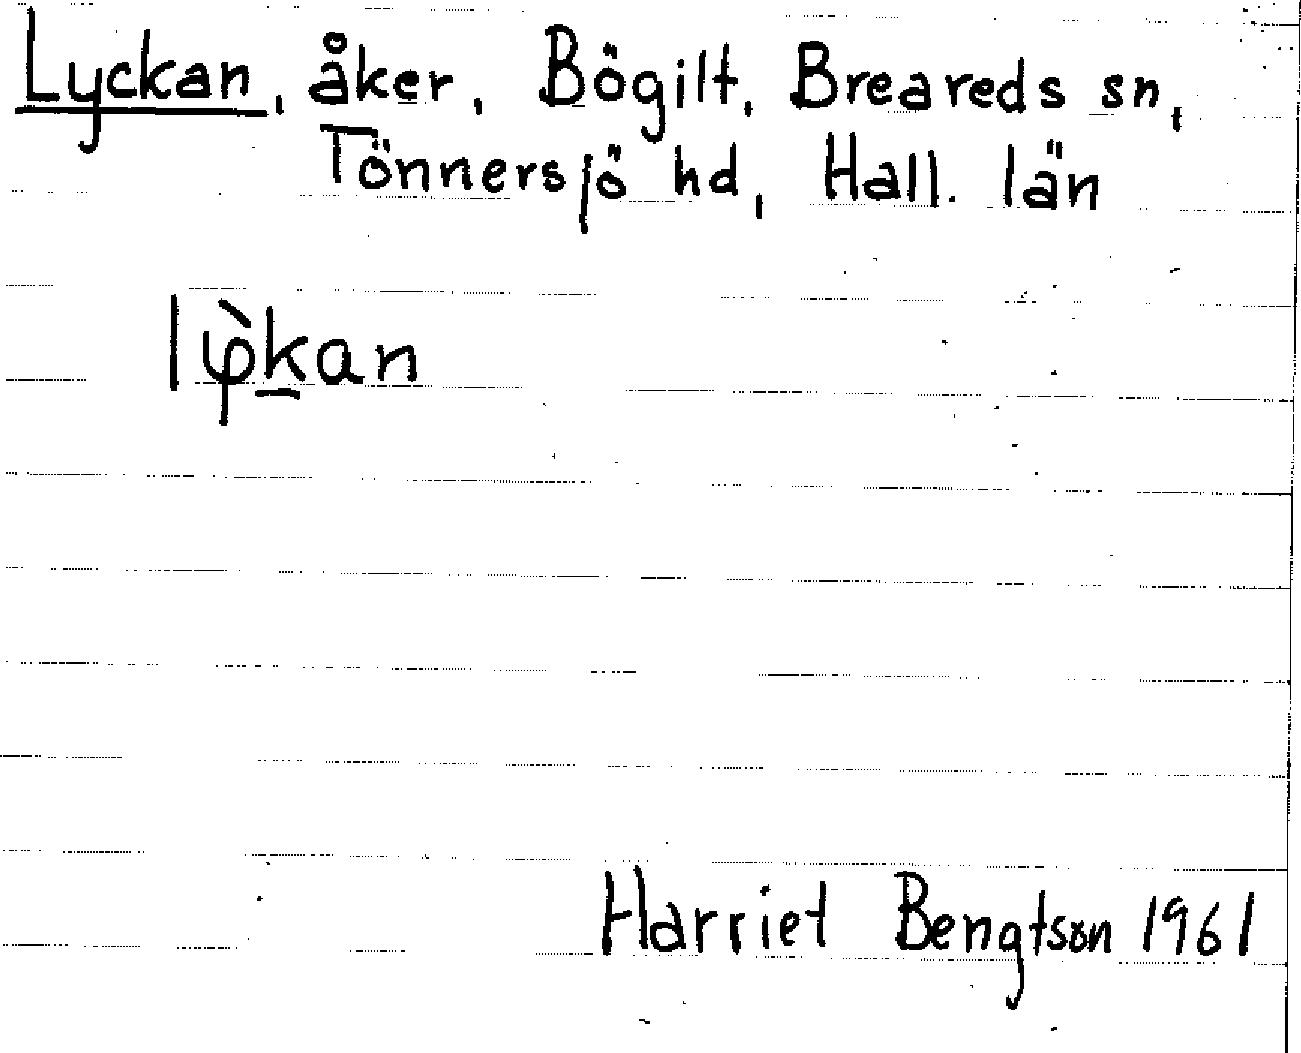 Lyckan, åker, Bögilt, Breareds sn,
Tönnersjö hd, Hall. län
lφ̀k̲an
Harriet Bengtson 1961